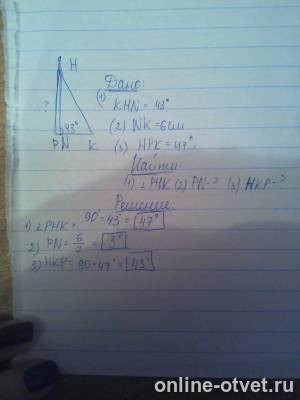 H
?
43°
PN K
Дано:
(1) KHN = 43°
(2) NK = 6см
(3) HPK = 43°
Найти:
(1) ∠PHK (2) PN-? (3) HKP-?
Решение:
1) ∠PHK = 90°-43° = 47°
2) PN = 6/2 = 3°
3) HKP = 90-47° = 43°
online-otvet.ru